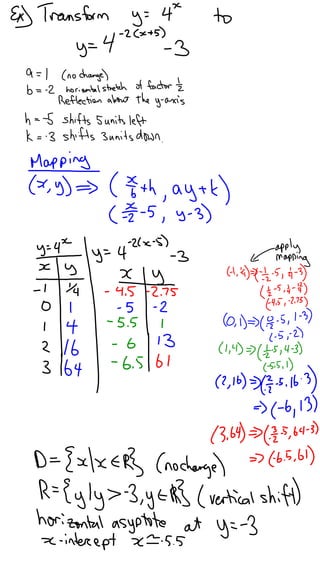 Ex) Transform y = 4^x to
y = 4^{-2(x+5)} - 3
a = 1 (no change)
b = -2 horizontal stretch of factor 1/2
Reflection about the y-axis
h = -5 shifts 5 units left
k = -3 shifts 3 units down.
Mapping
(x, y) ⇒ ( x/b + h, ay + k )
( x/-2 - 5, y - 3 )
y = 4^x
x y
-1 1/4
0 1
1 4
2 16
3 64
y = 4^{-2(x-5)} - 3
x y
-4.5 -2.75
-5 -2
-5.5 1
-6 13
-6.5 61
apply mapping
(-1, 1/4) ⇒ (-1/-2 - 5, 1/4 - 3)
(1/2 - 5, 1/4 - 4)
(-4.5, -2.75)
(0, 1) ⇒ (0/-2 - 5, 1 - 3)
(-5, -2)
(1, 4) ⇒ (1/-2 - 5, 4 - 3)
(-5.5, 1)
(2, 16) ⇒ (2/-2 - 5, 16 - 3)
⇒ (-6, 13)
(3, 64) ⇒ (3/-2 - 5, 64 - 3)
⇒ (-6.5, 61)
D = {x | x ∈ R} (no change)
R = {y | y > -3, y ∈ R} (vertical shift)
horizontal asyptote at y = -3
x-intercept x ≃ -5.5